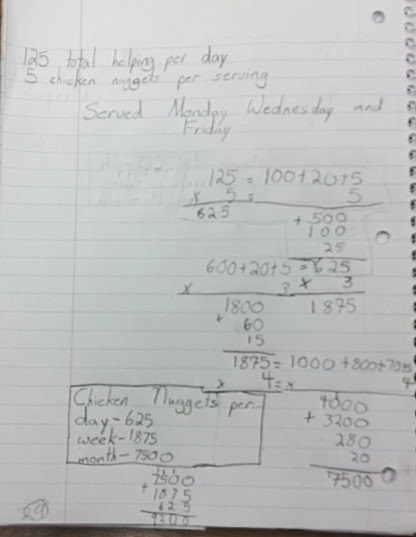 125 total helping per day
5 chicken nuggets per serving
Served Monday Wednesday and
Friday
125 = 100+20+5
x 5 = 5
625
+ 500
100
25
600+20+5 = 625
x 3 x 3
1800 1875
+ 60
15
1875 = 1000+800+70+5
x 4 = x 4
4000
+ 3200
280
20
7500
Chicken Nuggets per:
day-625
week-1875
month-7500
7500
+ 1875
625